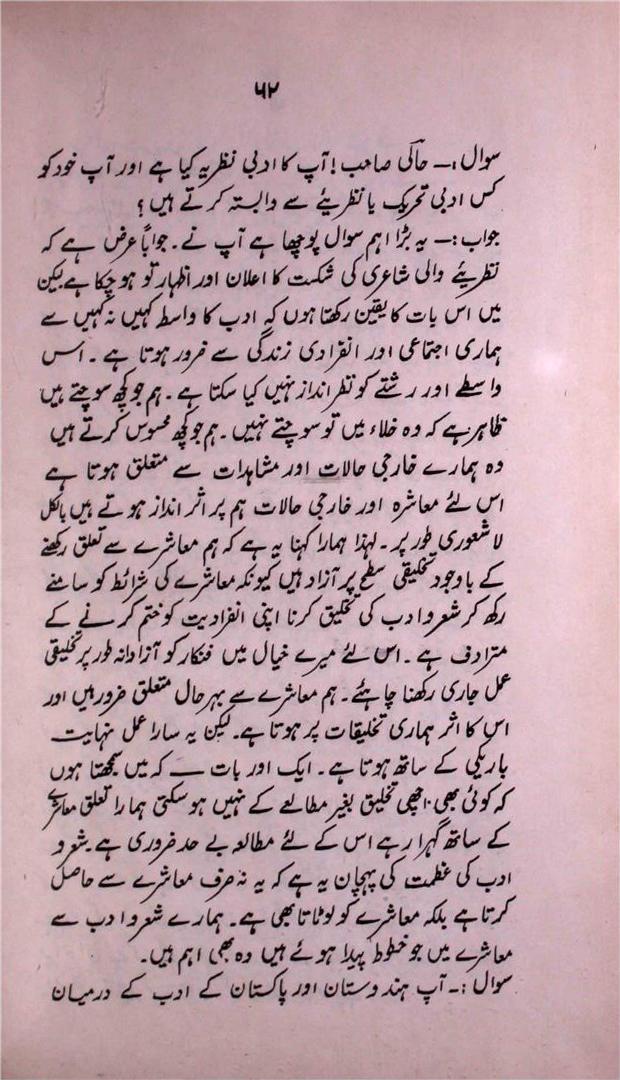 ۶۲
سوال :۔ حالی صاحب! آپ کا ادبی نظریہ کیا ہے اور آپ خود کو
کس ادبی تحریک یا نظریئے سے وابستہ کرتے ہیں؟
جواب :۔ یہ بڑا اہم سوال پوچھا ہے آپ نے۔ جواباً عرض ہے کہ
نظریئے والی شاعری کی شکست کا اعلان اور اظہار تو ہو چکا ہے لیکن
میں اس بات کا یقین رکھتا ہوں کہ ادب کا واسطہ کہیں نہ کہیں سے
ہماری اجتماعی اور انفرادی زندگی سے ضرور ہوتا ہے۔ اس
واسطے اور رشتے کو نظر انداز نہیں کیا سکتا ہے۔ ہم جو کچھ سوچتے ہیں
ظاہر ہے کہ وہ خلاء میں تو سوچتے نہیں۔ ہم جو کچھ محسوس کرتے ہیں
وہ ہمارے خارجی حالات اور مشاہدات سے متعلق ہوتا ہے
اس لئے معاشرہ اور خارجی حالات ہم پر اثر انداز ہوتے ہیں بالکل
لاشعوری طور پر۔ لہٰذا ہمارا کہنا یہ ہے کہ ہم معاشرے سے تعلق رکھنے
کے باوجود تخلیقی سطح پر آزاد ہیں کیونکہ معاشرے کی شرائط کو سامنے
رکھ کر شعر و ادب کی تخلیق کرنا اپنی انفرادیت کو ختم کرنے کے
مترادف ہے۔ اس لئے میرے خیال میں فنکار کو آزادانہ طور پر تخلیقی
عمل جاری رکھنا چاہئے۔ ہم معاشرے سے بہرحال متعلق ضرور ہیں اور
اس کا اثر ہماری تخلیقات پر ہوتا ہے۔ لیکن یہ سارا عمل نہایت
باریکی کے ساتھ ہوتا ہے۔ ایک اور بات ــــ کہ میں سمجھتا ہوں
کہ کوئی بھی اچھی تخلیق بغیر مطالعے کے نہیں ہو سکتی ہمارا تعلق معاشرے
کے ساتھ گہرا رہے اس کے لئے مطالعہ بے حد ضروری ہے۔ شعر و
ادب کی عظمت کی پہچان یہ ہے کہ یہ نہ صرف معاشرے سے حاصل
کرتا ہے بلکہ معاشرے کو لوٹاتا بھی ہے۔ ہمارے شعر و ادب سے
معاشرے میں جو خطوط پیدا ہوئے ہیں وہ بھی اہم ہیں۔
سوال :۔ آپ ہندوستان اور پاکستان کے ادب کے درمیان